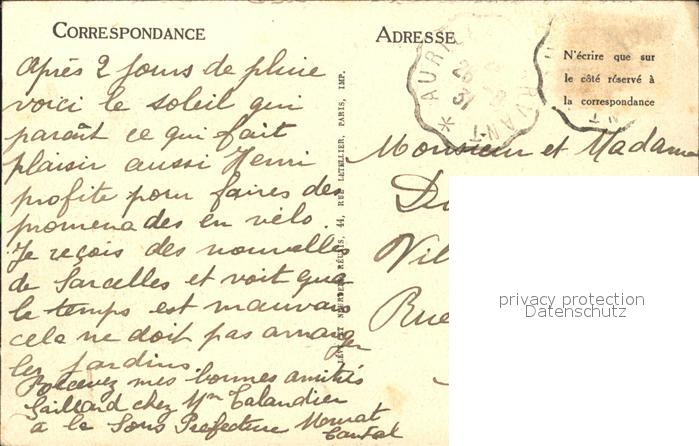 CORRESPONDANCE
ADRESSE
N'écrire que sur
le côté réservé à
la correspondance
Après 2 jours de pluie
voici le soleil qui
paraît ce qui fait
plaisir aussi Henri
profite pour faires des
promenades en vélo.
Je reçois des nouvelles
de Sarcelles et voit que
le temps est mauvais
cela ne doit pas arranger
les jardins.
Recevez mes bonnes amitiés
Gaillard chez Mr Talandier
a la Sous Prefecture Mauriat
Cantal
RÉUNIS, 44, RUE LETELLIER, PARIS, IMP.
Monsieur et Madame
Du
Vil
Rue
privacy protection
Datenschutz